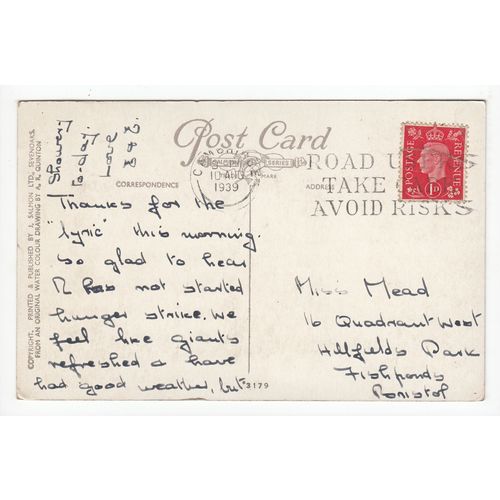 Post Card
SALMON SERIES
MARK
CORRESPONDENCE
ADDRESS
COPYRIGHT. PRINTED & PUBLISHED BY J. SALMON LTD., SEVENOAKS.
FROM AN ORIGINAL WATER COLOUR DRAWING BY A. R. QUINTON
10 AUG
1939
ROAD
TAKE
AVOID RISKS
POSTAGE
REVENUE
1D
Thanks for the
"lyric" this morning.
so glad to hear
R has not started
hunger strike. We
feel like giants
refreshed & have
had good weather, but
3179
Showery
to-day
Love
Miss Mead
16 Quadrant West
Hillfields Park
Fishponds
Bristol